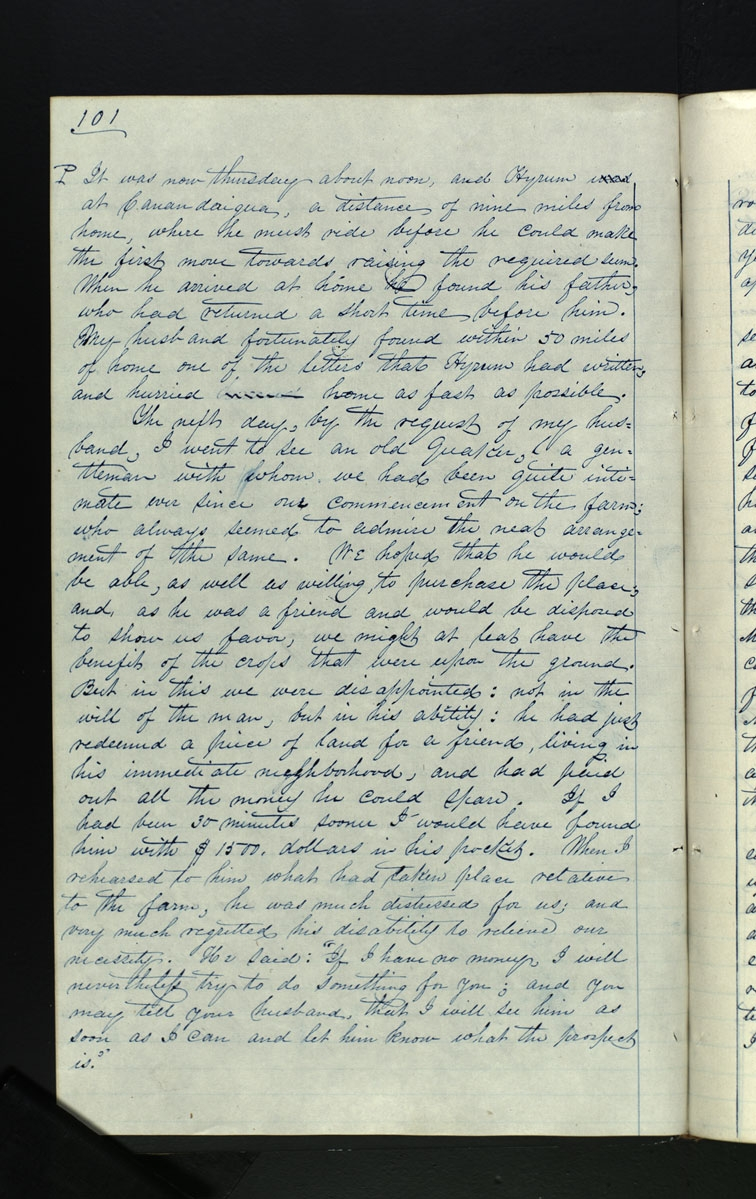 101
P It was now thursday about noon, and Hyrum was
at Canandaigua, a distance of nine miles from
home, where he must ride before he could make
the first move towards raising the required sum.
When he arrived at home he found his father,
who had returned a short time before him.
My husband fortunately found within 50 miles
of home one of the letters that Hyrum had written,
and hurried home as fast as possible.
The next day, by the request of my hus=
band, I went to see an old Quaker, (a gen=
tleman with whom we had been quite inti=
mate ever since our commencement on the farm;
who always seemed to admire the neat arrange=
ment of the same. WE hoped that he would
be able, as well as willing, to purchase the place;
and, as he was a friend and would be disposed
to show us favor, we might at leat have the
benefit of the crops that were upon the ground.
But in this we were disappointed: not in the
will of the man, but in his ability: he had just
redeemed a piece of land for a friend, living in
his immediate neighborhood, and had paid
out all the money he could spare. If I
had been 30 minutes sooner I would have found
him with $1500. dollars in his pocket. When I
rehearsed to him what had taken place relative
to the farm, he was much distressed for us; and
very much regretted his disability to relieve our
necessity. He said: "If I have no money, I will
nevertheless try to do something for you; and you
may tell your husband, that I will see him as
soon as I can and let him know what the prospect
is."